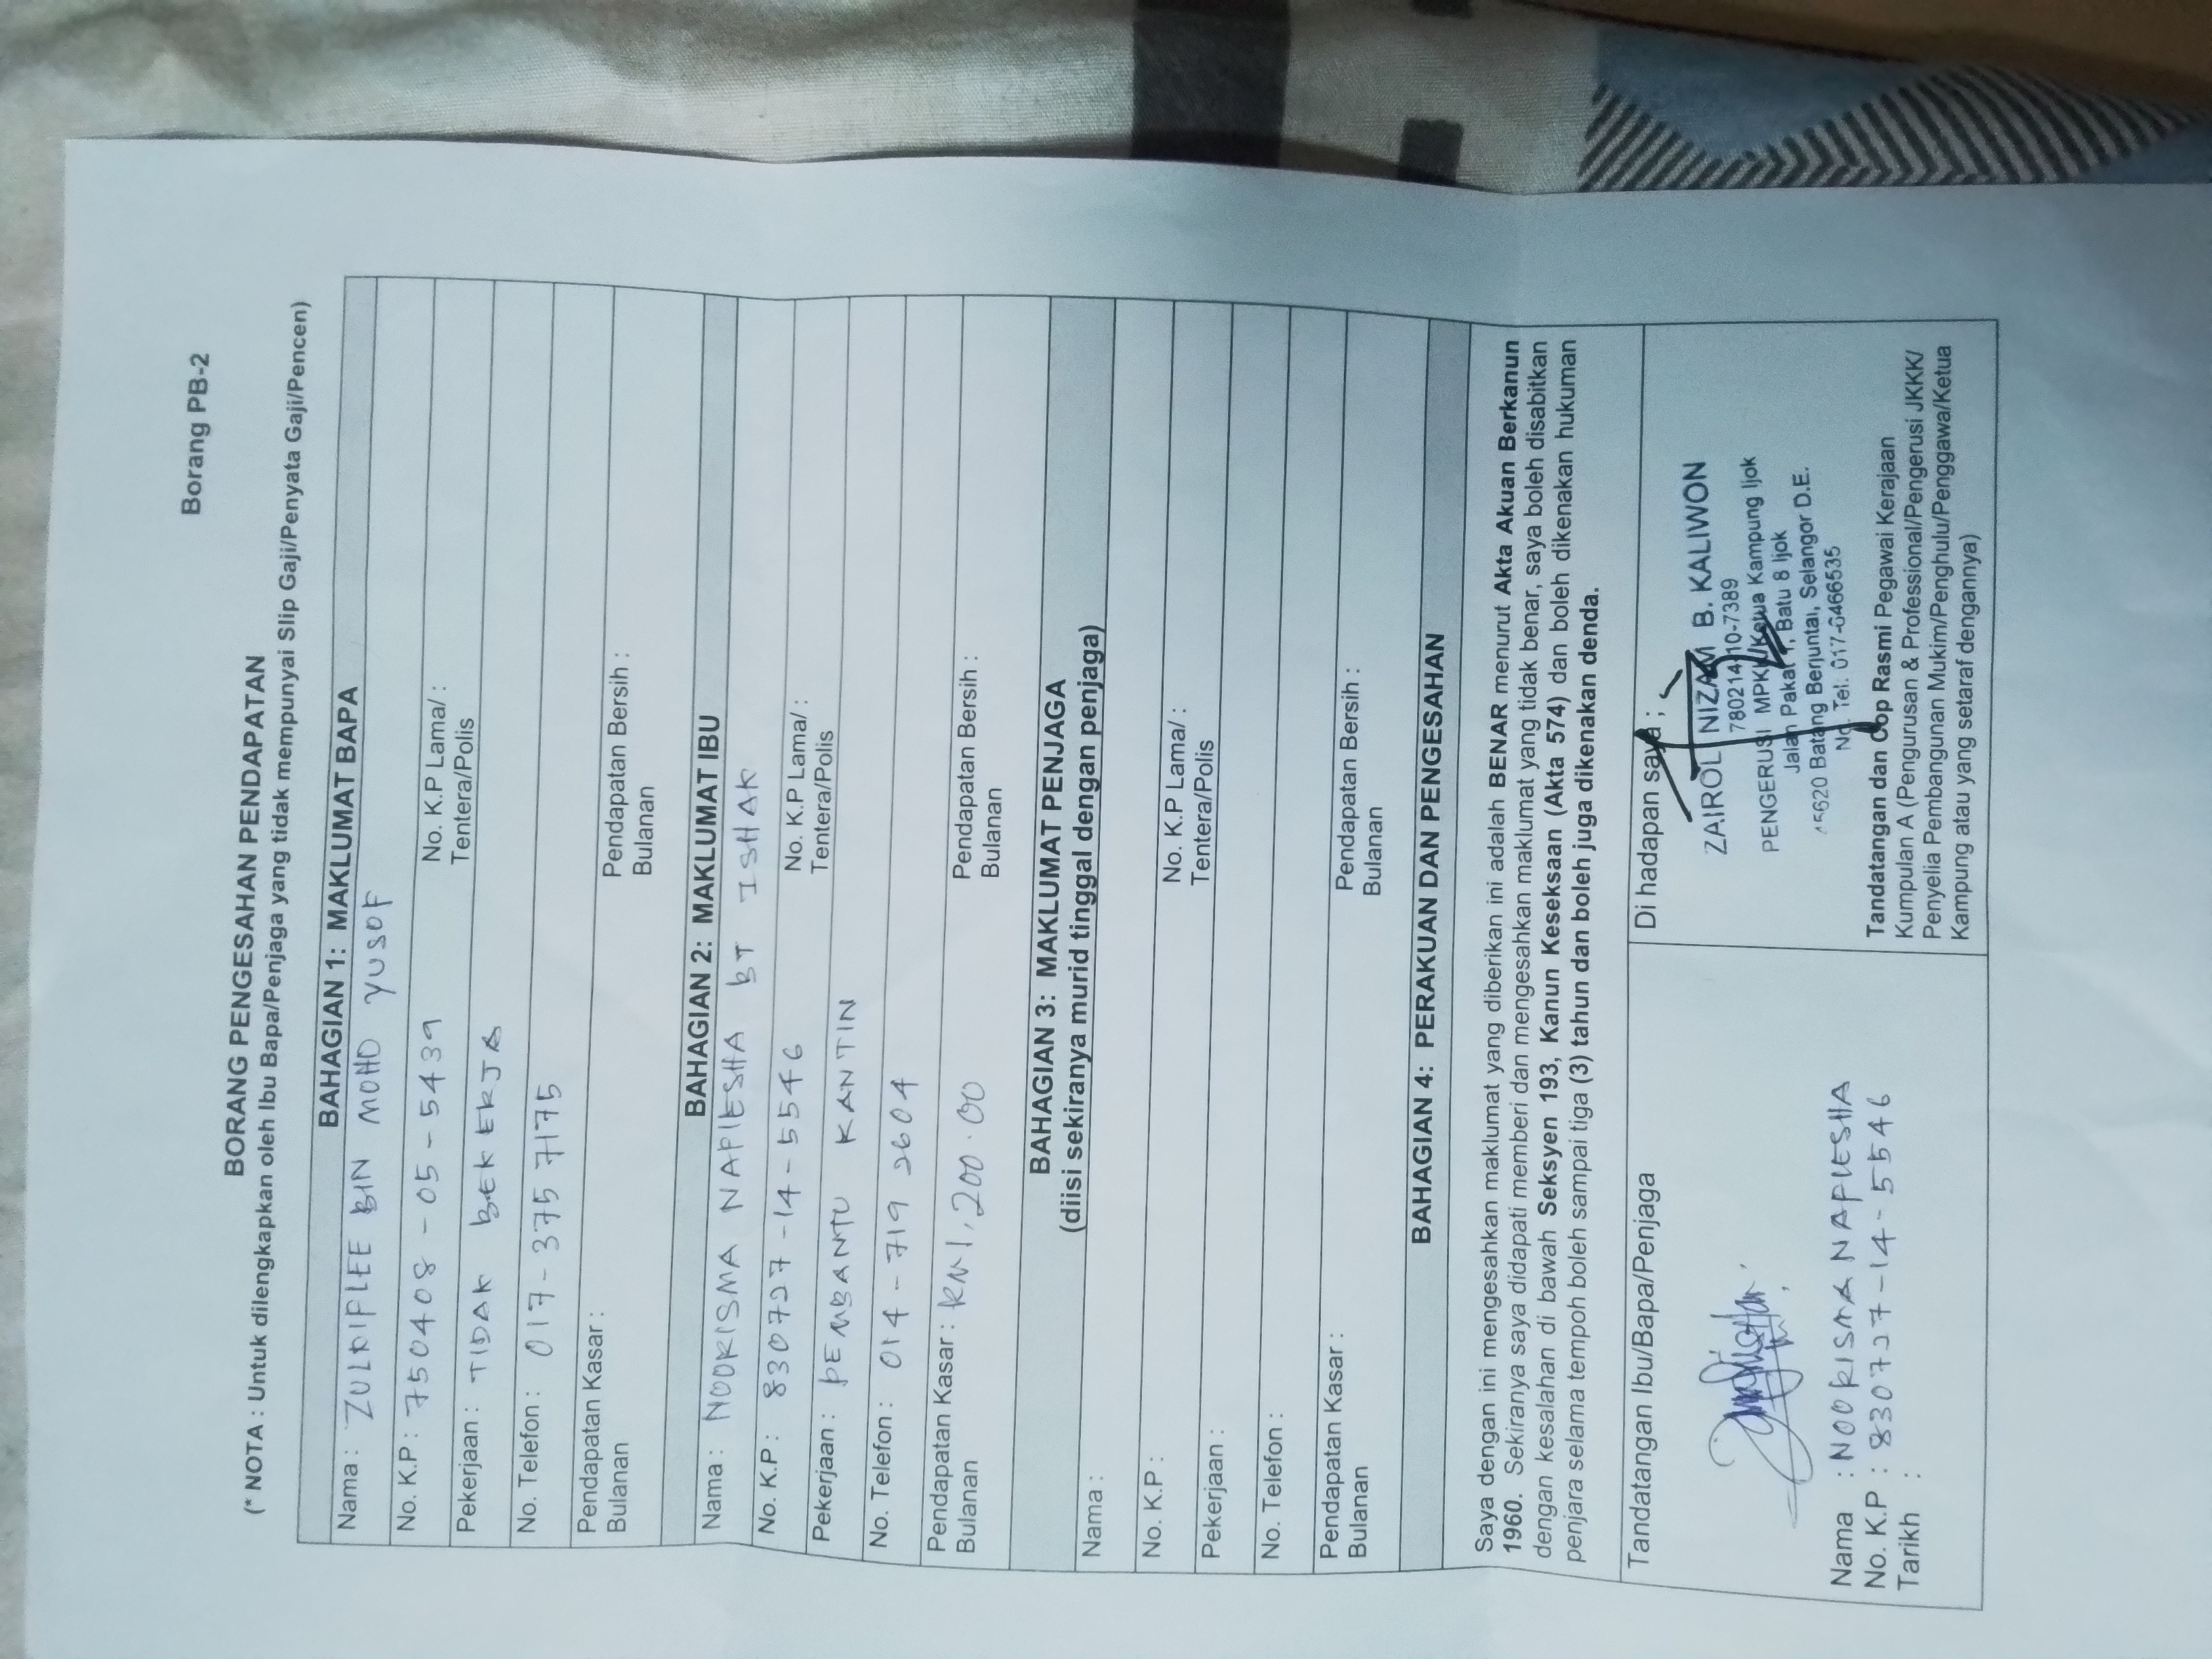 Borang PB-2
BORANG PENGESAHAN PENDAPATAN
(* NOTA : Untuk dilengkapkan oleh Ibu Bapa/Penjaga yang tidak mempunyai Slip Gaji/Penyata Gaji/Pencen)
BAHAGIAN 1: MAKLUMAT BAPA
Nama : ZULKIFLEE BIN MOHD YUSOF
No. K.P : 750408-05-5439 No. K.P Lama/ :
Tentera/Polis
Pekerjaan : TIDAK BEKERJA
No. Telefon : 017-375 7175
Pendapatan Kasar : Pendapatan Bersih :
Bulanan Bulanan
BAHAGIAN 2: MAKLUMAT IBU
Nama : NOORISMA NAPIESHA BT ISHAK
No. K.P : 830727-14-5546 No. K.P Lama/ :
Tentera/Polis
Pekerjaan : PEMBANTU KANTIN
No. Telefon : 014-719 2604
Pendapatan Kasar : RM1,200.00 Pendapatan Bersih :
Bulanan Bulanan
BAHAGIAN 3: MAKLUMAT PENJAGA
(diisi sekiranya murid tinggal dengan penjaga)
Nama :
No. K.P : No. K.P Lama/ :
Tentera/Polis
Pekerjaan :
No. Telefon :
Pendapatan Kasar : Pendapatan Bersih :
Bulanan Bulanan
BAHAGIAN 4: PERAKUAN DAN PENGESAHAN
Saya dengan ini mengesahkan maklumat yang diberikan ini adalah BENAR menurut Akta Akuan Berkanun
1960. Sekiranya saya didapati memberi dan mengesahkan maklumat yang tidak benar, saya boleh disabitkan
dengan kesalahan di bawah Seksyen 193, Kanun Keseksaan (Akta 574) dan boleh dikenakan hukuman
penjara selama tempoh boleh sampai tiga (3) tahun dan boleh juga dikenakan denda.
Tandatangan Ibu/Bapa/Penjaga
Nama : NOORISMA NAPIESHA
No. K.P : 830727-14-5546
Tarikh :
Di hadapan saya ;
ZAIROL NIZAM B. KALIWON
780214-10-7389
PENGERUSI MPKK/Ketua Kampung Ijok
Jalan Pakat 1, Batu 8 Ijok
45620 Batang Berjuntai, Selangor D.E.
No. Tel: 017-6466535
Tandatangan dan Cop Rasmi Pegawai Kerajaan
Kumpulan A (Pengurusan & Professional/Pengerusi JKKK/
Penyelia Pembangunan Mukim/Penghulu/Penggawa/Ketua
Kampung atau yang setaraf dengannya)